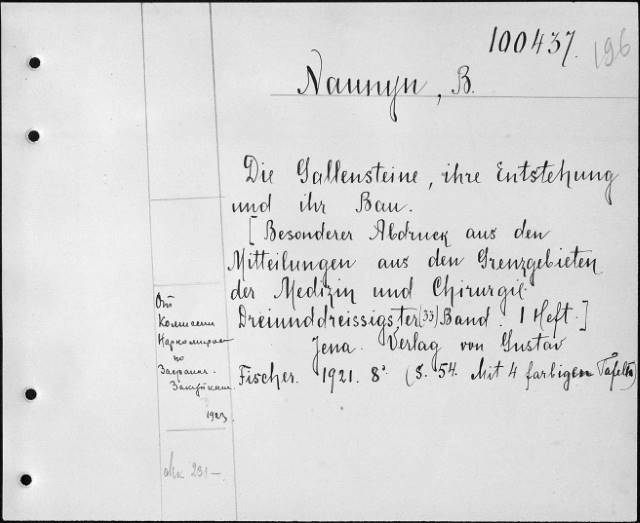 100437.
196
Naunyn, B.
Die Gallensteine, ihre Entstehung
und ihr Bau.
[Besonderer Abdruck aus den
Mitteilungen aus den Grenzgebieten
der Medizin und Chirurgie.
Dreiunddreissigster (33) Band. 1 Heft.]
Jena. Verlag von Gustav
Fischer. 1921. 8°. (S. 54. Mit 4 farbigen Tafeln)
От
Комиссии
по
Загранич.
1923
231–